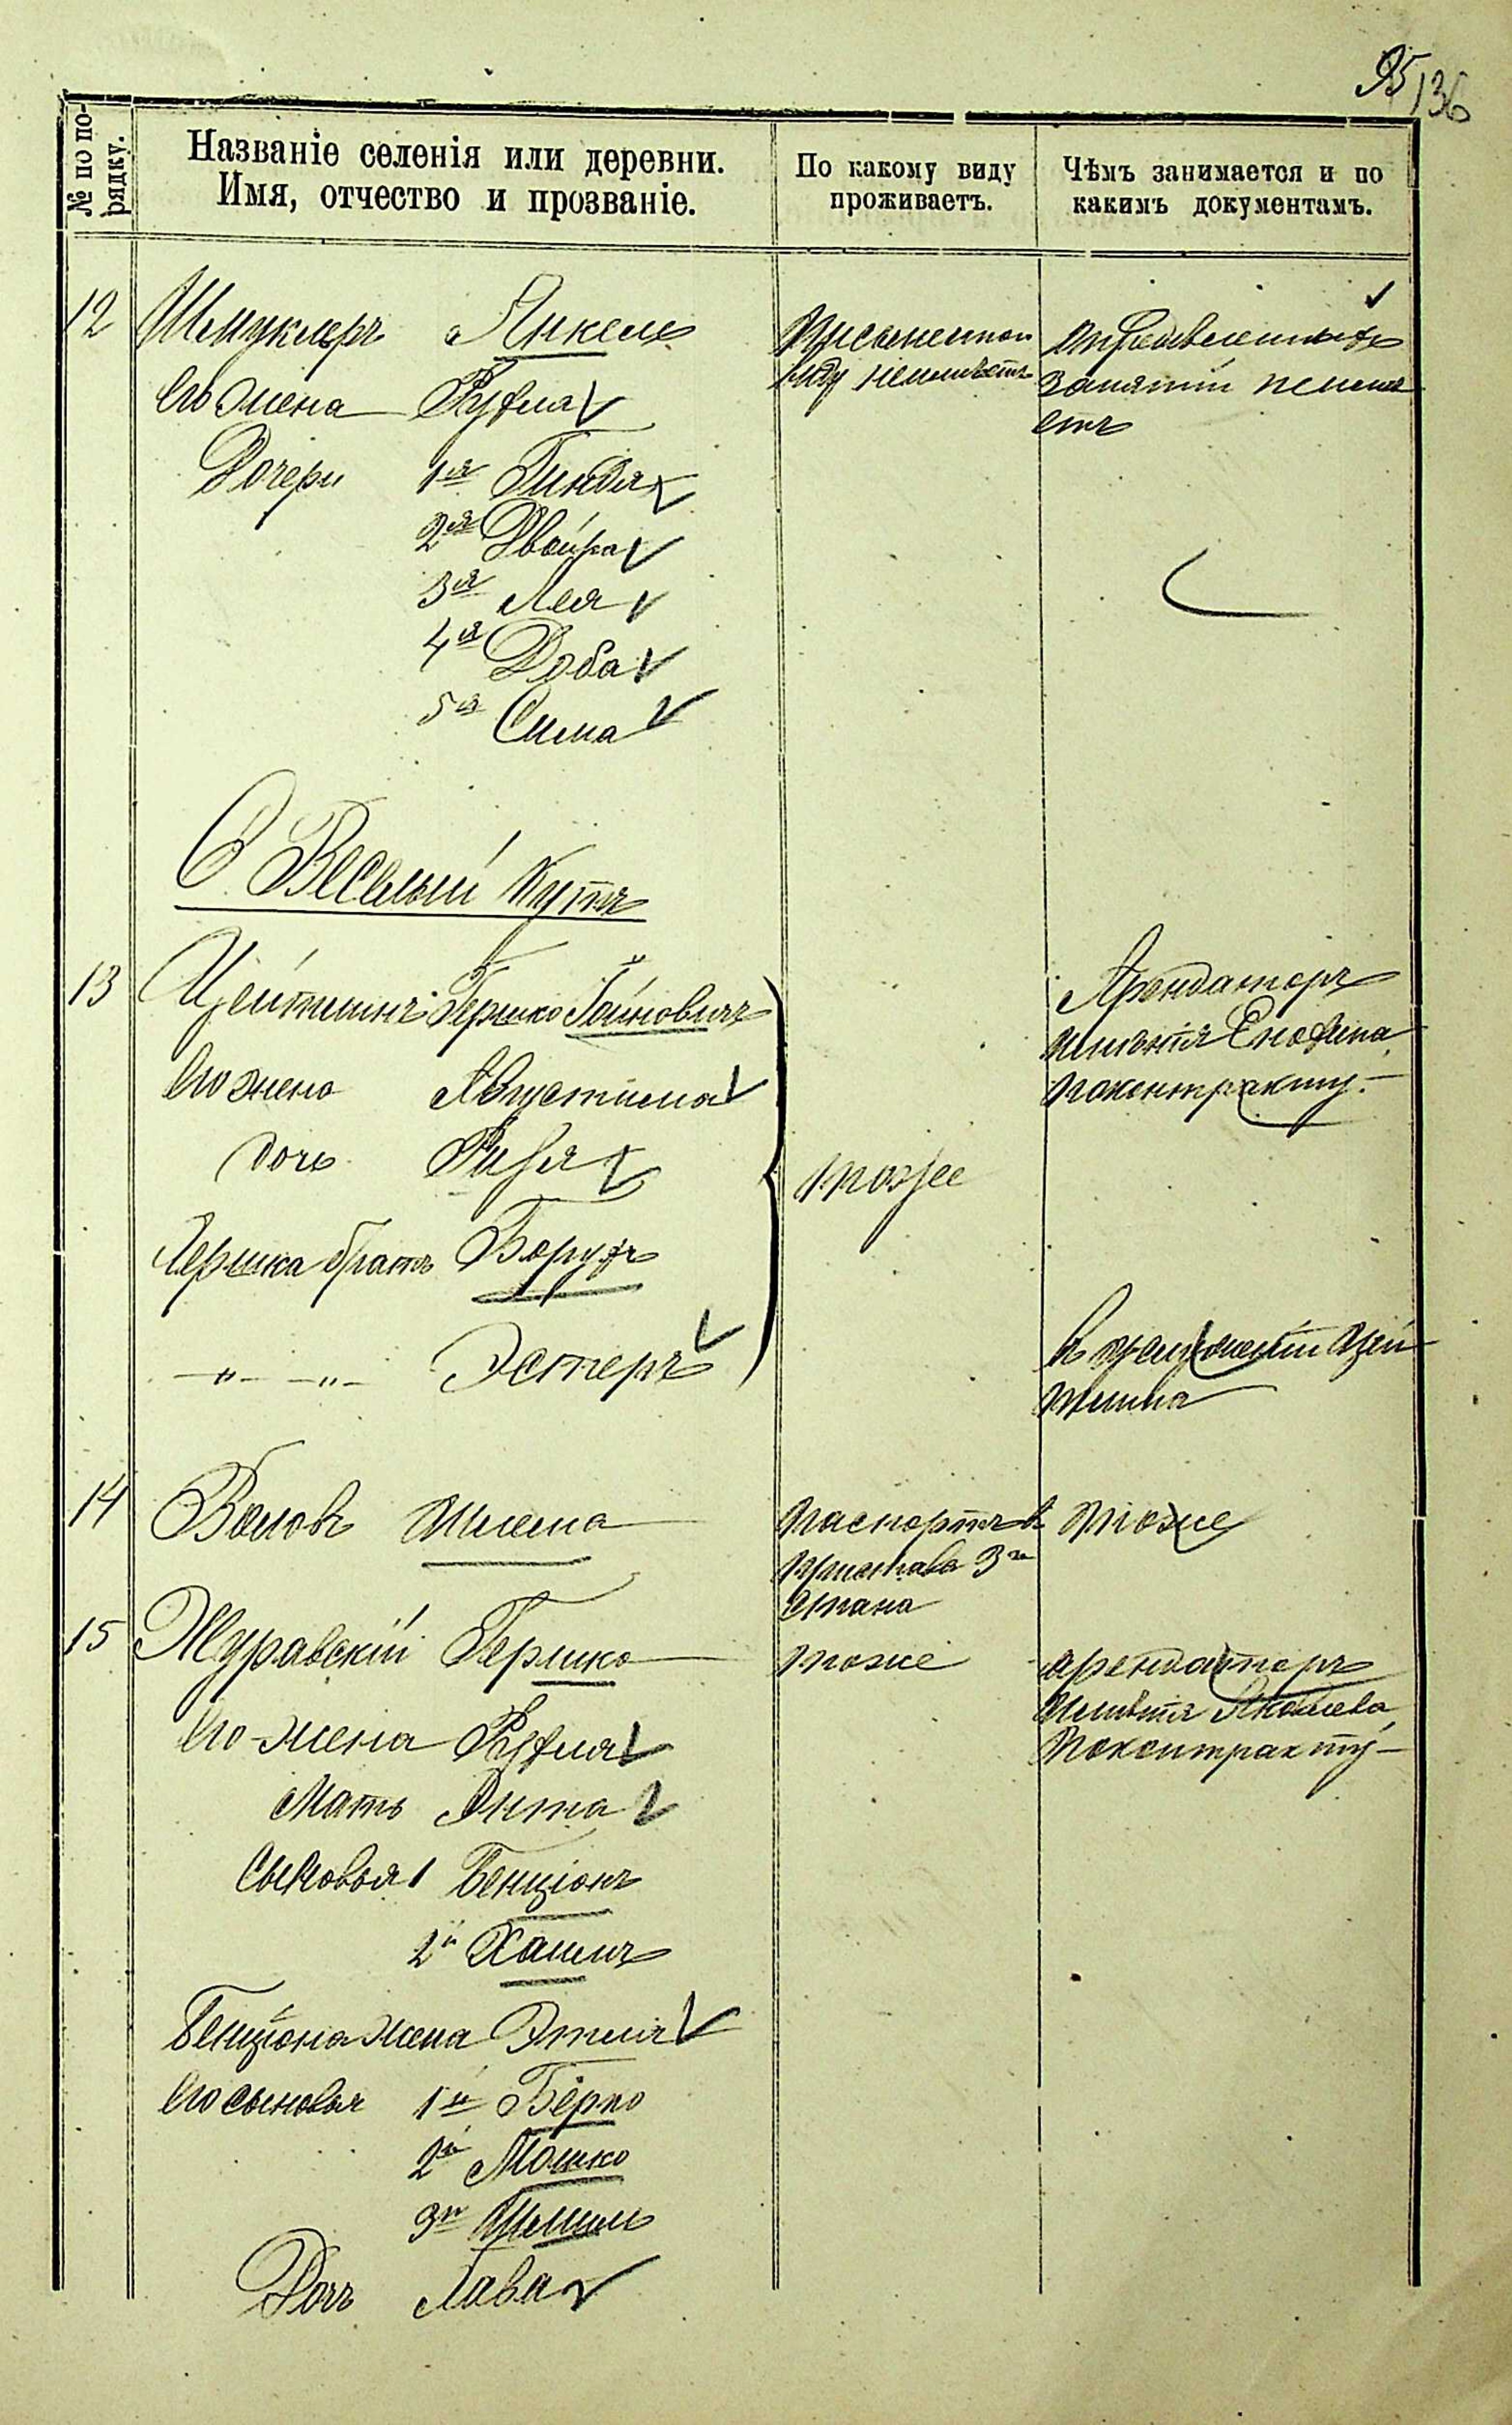 95
136
№ по по-
рядку.
Названіе селенія или деревни.
Имя, отчество и прозваніе.
По какому виду
проживаетъ.
Чѣмъ занимается и по
какимъ документамъ.
12 Шмуклеръ Янкель
Его жена Рухля
Дочери 1я Гиндя
2я Двойра
3я Лея
4я Доба
5я Сима
вида неимѣетъ
опредѣленныхъ
занятій неиме
етъ
С. Веселый Кутъ
13 Цейтлинъ Гершко Іойновичъ
Его жена Августина
дочь
Гершка братъ Борухъ
—„— —„— Эстеръ
тоже
Арендаторъ
имѣнія
поконтракту.—
в услуженіи Цей
тлина
14 Шлема
Паспортъ
Пристава 3го
Стана
тоже
15 Журавскій Гершко
Его жена Рухля
Мать Энта
Сыновья 1 Бенціонъ
2й Хаимъ
Бенціона жена Этля
Его сыновья 1й Берко
2й Мошко
3й
Дочь Хава
тоже
арендаторъ
имѣнія Яковлева
Поконтракту—